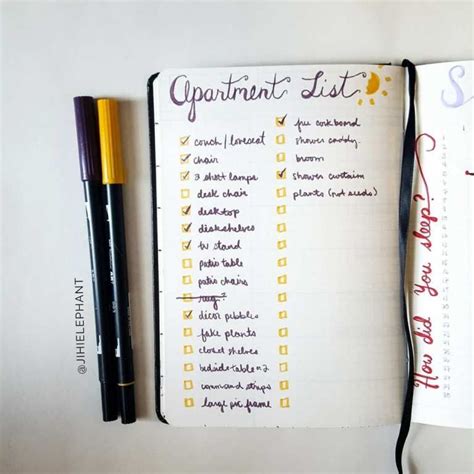 Apartment List
couch/loveseat
chair
3 shelf lamps
desk chair
desktop
desk shelves
tv stand
patio table
patio chairs
rug?
décor pebbles
fake plants
closet shelves
bedside table x 2
command strips
large pic frame
cork board
shower caddy
broom
shower curtain
plants (not seeds)
How did You sleep?
S
@JIHIELEPHANT